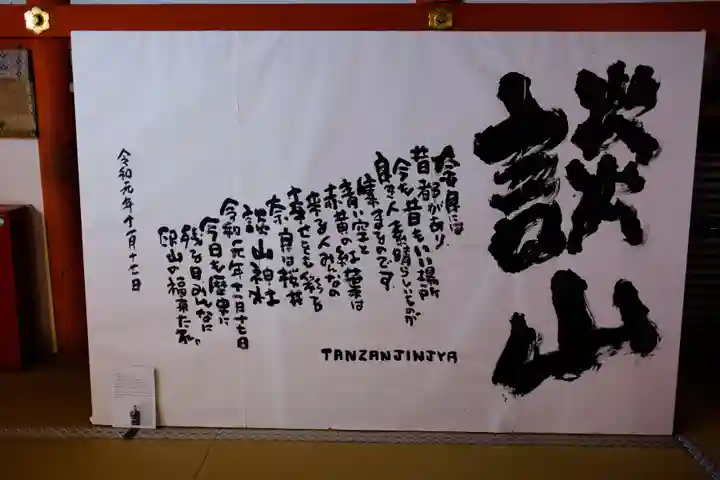 談山
奈良には
昔 都があり
今も昔もいい場所
良き人 素晴らしいものが
集まるのです
青い空と
赤黄の紅葉は
来る人みんなの
幸せをも彩る
奈良は桜井
談山神社
令和元年十一月十七日
今日も歴史に
残る日 みんなに
談山の福来たる
TANZANJINJYA
令和元年十一月十七日